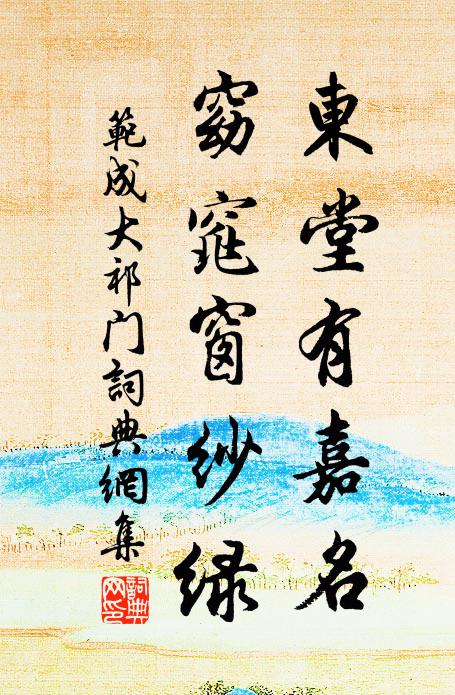 東堂有嘉名
窈窕窗紗緑
範成大祁门詞典網集
詞典
网印